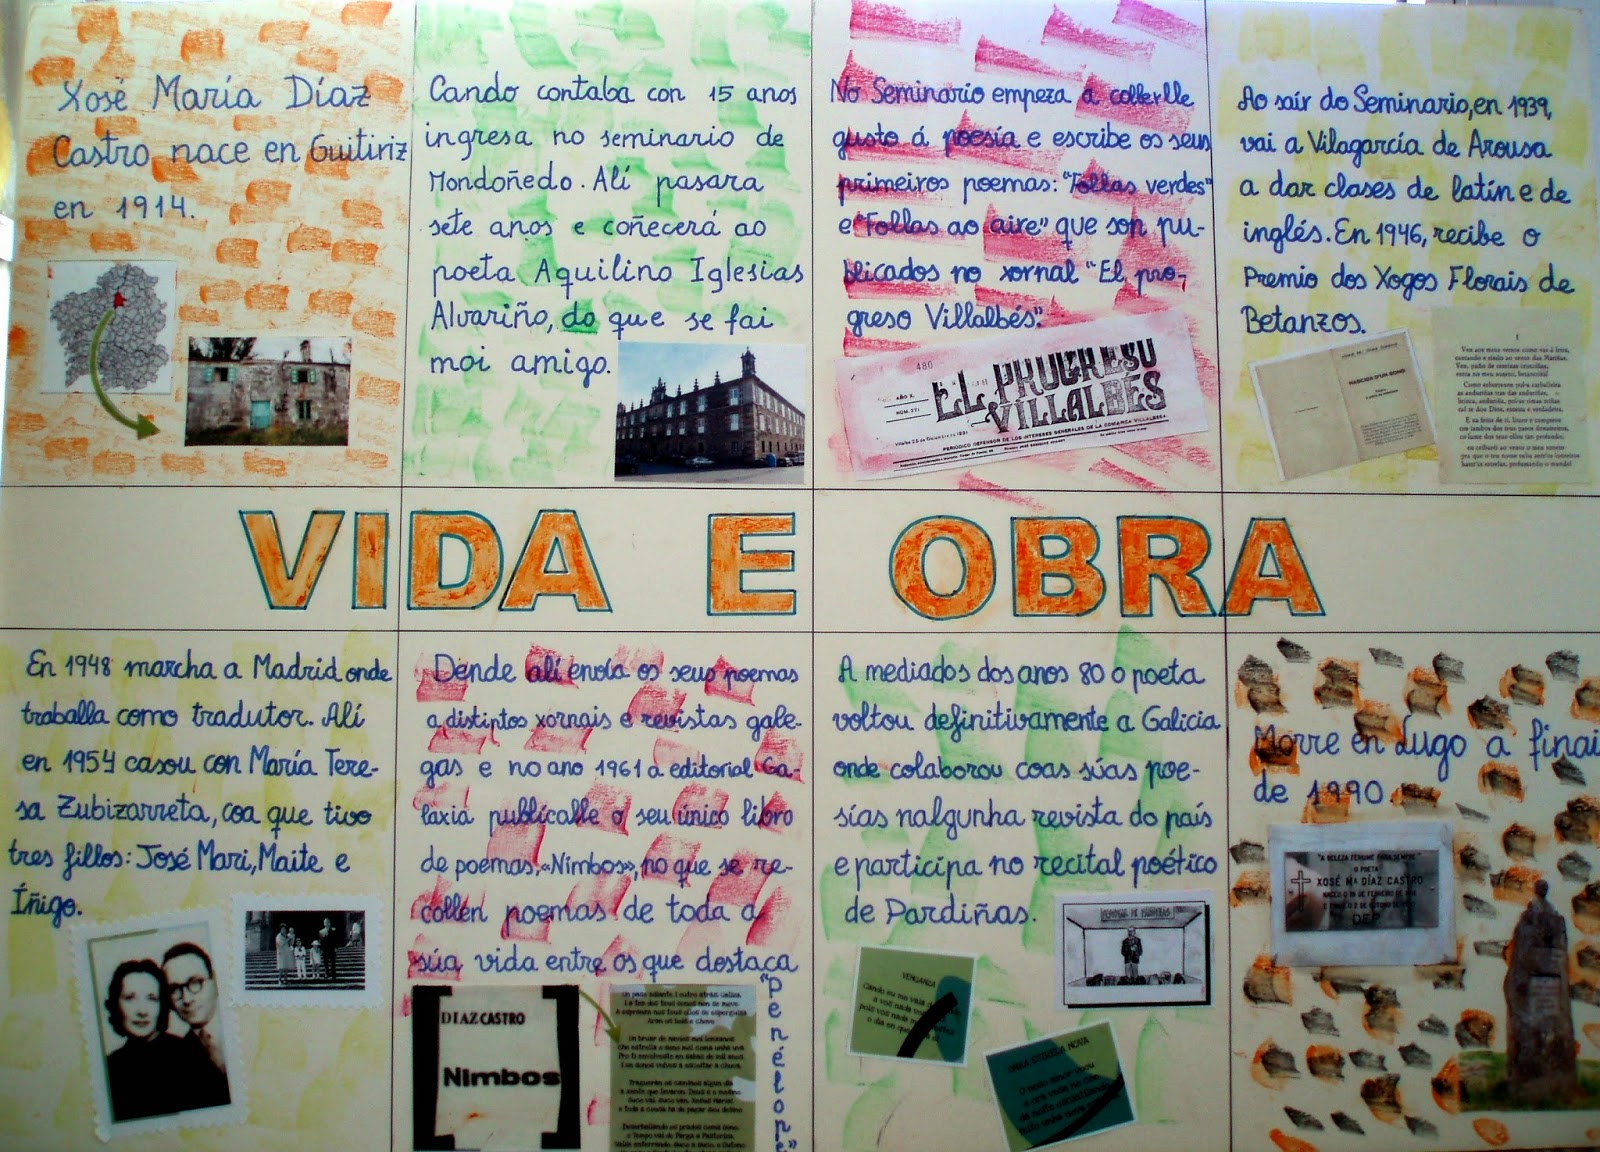 Xosé María Díaz
Castro nace en Guitiriz
en 1914.
Cando contaba con 15 anos
ingresa no seminario de
Mondoñedo. Alí pasara
sete anos e coñecerá ao
poeta Aquilino Iglesias
Alvariño, do que se fai
moi amigo.
No Seminario empeza a collerlle
gusto á poesía e escribe os seus
primeiros poemas: "Follas verdes"
e "Follas ao aire" que son pu-
blicados no xornal "El pro-
greso Villalbés".
480
AÑO X.
NÚM. 271
EL PROGRESO
VILLALBÉS
PERIÓDICO DEFENSOR DE LOS INTERESES GENERALES DE LA COMARCA VILLALBESA
Ao saír do Seminario, en 1939,
vai a Vilagarcía de Arousa
a dar clases de latín e de
inglés. En 1946, recibe o
Premio dos Xogos Florais de
Betanzos.
NASCIDA D'UN SONO
VIDA E OBRA
En 1948 marcha a Madrid onde
traballa como tradutor. Alí
en 1954 casou con María Tere-
sa Zubizarreta, coa que tivo
tres fillos: José Mari, Maite e
Íñigo.
Dende alí envía os seus poemas
a distintos xornais e revistas gale-
gas e no ano 1961 a editorial Ga-
laxia publicalle o seu único libro
de poemas, «Nimbos», no que se re-
collen poemas de toda a
súa vida entre os que destaca
"Penélope"
DIAZ CASTRO
Nimbos
Un paso adiante i outro atrás, Galiza,
A mediados dos anos 80 o poeta
voltou definitivamente a Galicia
onde colaborou coas súas poe-
sías nalgunha revista do país
e participa no recital poético
de Pardiñas.
VENGANZA
UNHA ESTRELA NOVA
Morre en Lugo a finai
de 1990.
"A BELEZA FERIUME PARA SEMPRE"
O POETA
XOSÉ Mª DÍAZ CASTRO
DEP